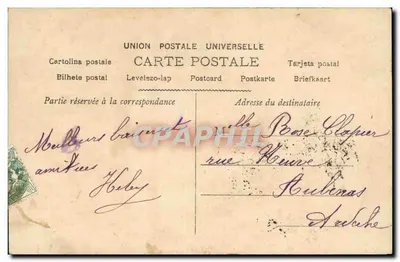 UNION POSTALE UNIVERSELLE
CARTE POSTALE
Cartolina postale
Tarjeta postal
Bilhete postal Levelezo-lap Postcard Postkarte Briefkaart
Partie réservée à la correspondance
Adresse du destinataire
Meilleurs baisers et
amitiées
Hely
Melle Rose Clapier
rue Neuve
Aubenas
Ardèche
CPAPHIL